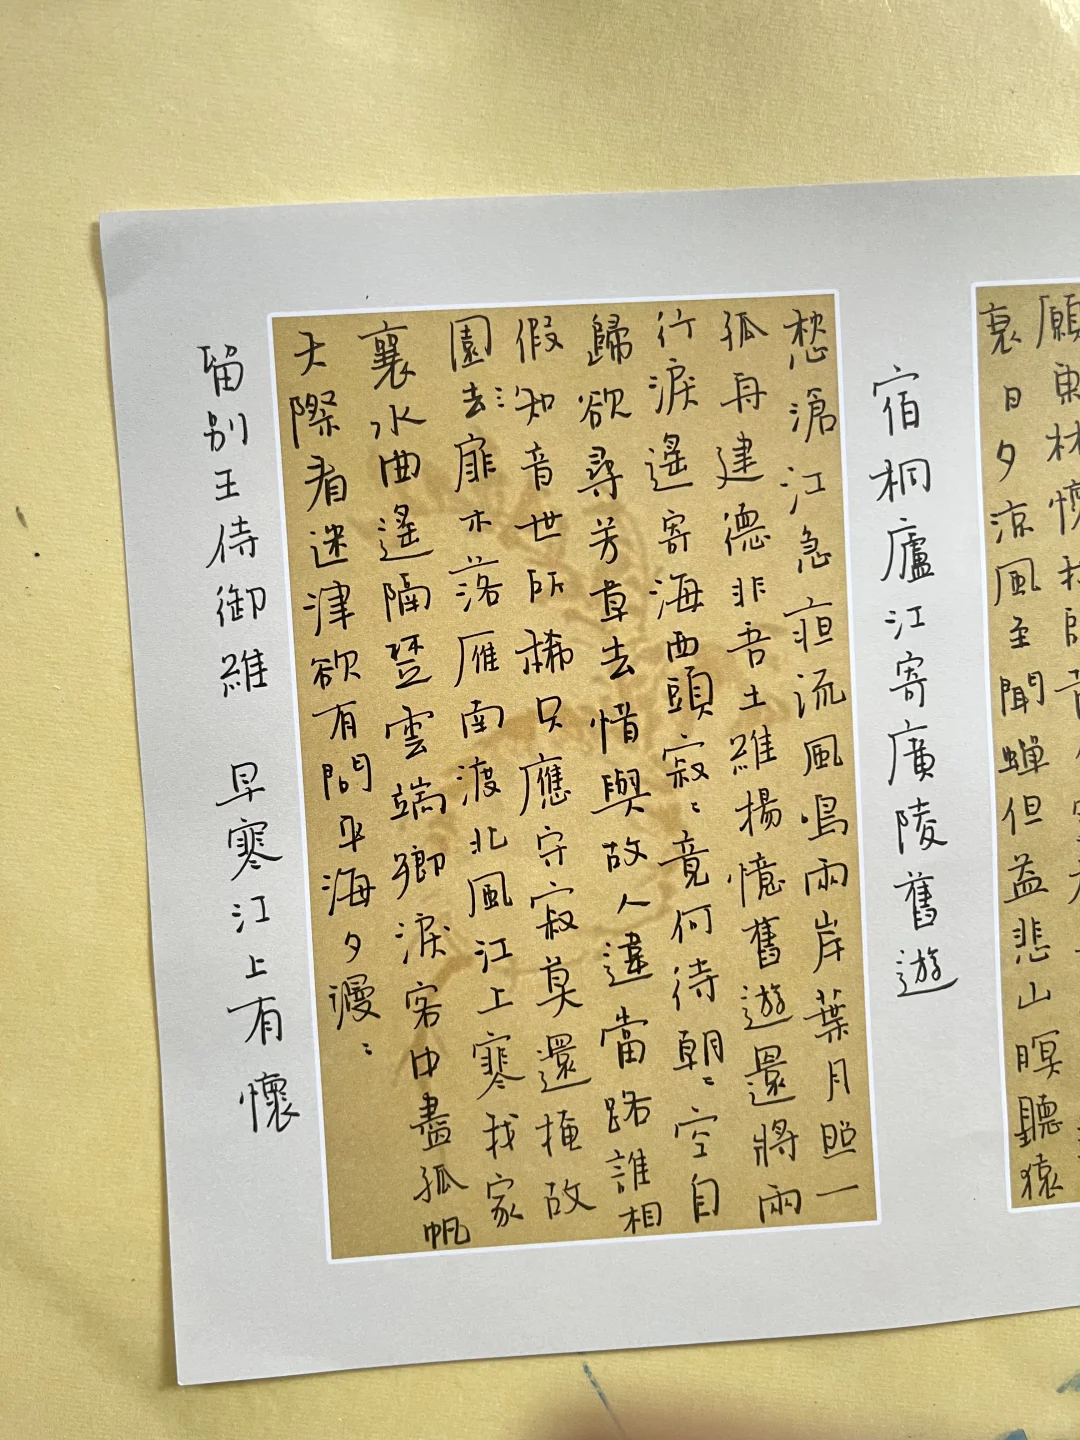 願東林懷我師
衰日夕涼風至聞蟬但益悲山暝聽猿
宿桐廬江寄廣陵舊遊
愁滄江急夜流風鳴兩岸葉月照一
孤舟建德非吾土維揚憶舊遊還將兩
行淚遙寄海西頭寂〻竟何待朝〻空自
歸欲尋芳草去惜與故人違當路誰相
假知音世所稀只應守寂莫還掩故
園去扉木落雁南渡北風江上寒我家
襄水曲遙隔楚雲端鄉淚客中盡孤帆
天際看迷津欲有問平海夕漫〻
留別王侍御維 早寒江上有懷